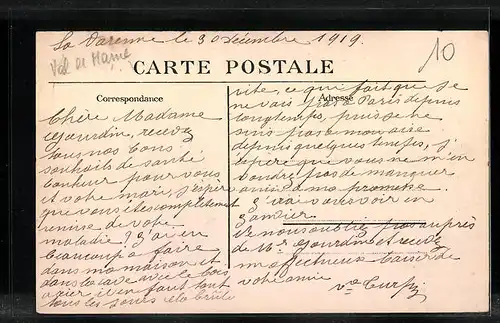 La Varenne le 30 décembre 1919.
Val de Marne
10
CARTE POSTALE
Correspondance
Adresse
Chère Madame
Jourdin, recevez
tous nos bons
souhaits de santé
bonheur pour vous
et votre mari, j'espère
que vous êtes complètement
remise de votre
maladie? j'ai eu
beaucoup a faire
dans ma maison et
dans la cave avec le bois
a scier il en faut tout
tous les jours
vite, ce qui fait que je
ne vais pas à Paris depuis
longtemps, puis je ne
suis pas a mon aise
depuis quelques temps, j'
espère que vous ne m'en
voudrez pas de manquer
ainsi a ma promesse.
j'irai vous voir en
janvier.
Ne nous oubliez pas auprès
de Mr Jourdin et recevez
un affectueux baiser de
votre amie
Vve